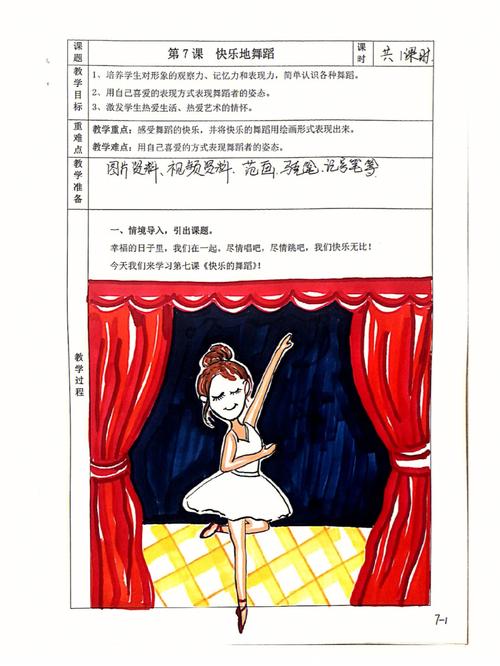 课题
第 7 课　快乐地舞蹈
课时
共1课时
教学目标
1、培养学生对形象的观察力、记忆力和表现力，简单认识各种舞蹈。
2、用自己喜爱的表现方式表现舞蹈者的姿态。
3、激发学生热爱生活、热爱艺术的情怀。
重难点
教学重点：感受舞蹈的快乐，并将快乐的舞蹈用绘画形式表现出来。
教学难点：用自己喜爱的方式表现舞蹈者的姿态。
教学准备
图片资料、视频资料、范画、记号笔等
一、情境导入，引出课题。
幸福的日子里，我们在一起。尽情唱吧，尽情跳吧，我们快乐无比！
今天我们来学习第七课《快乐的舞蹈》！
教学过程
7-1